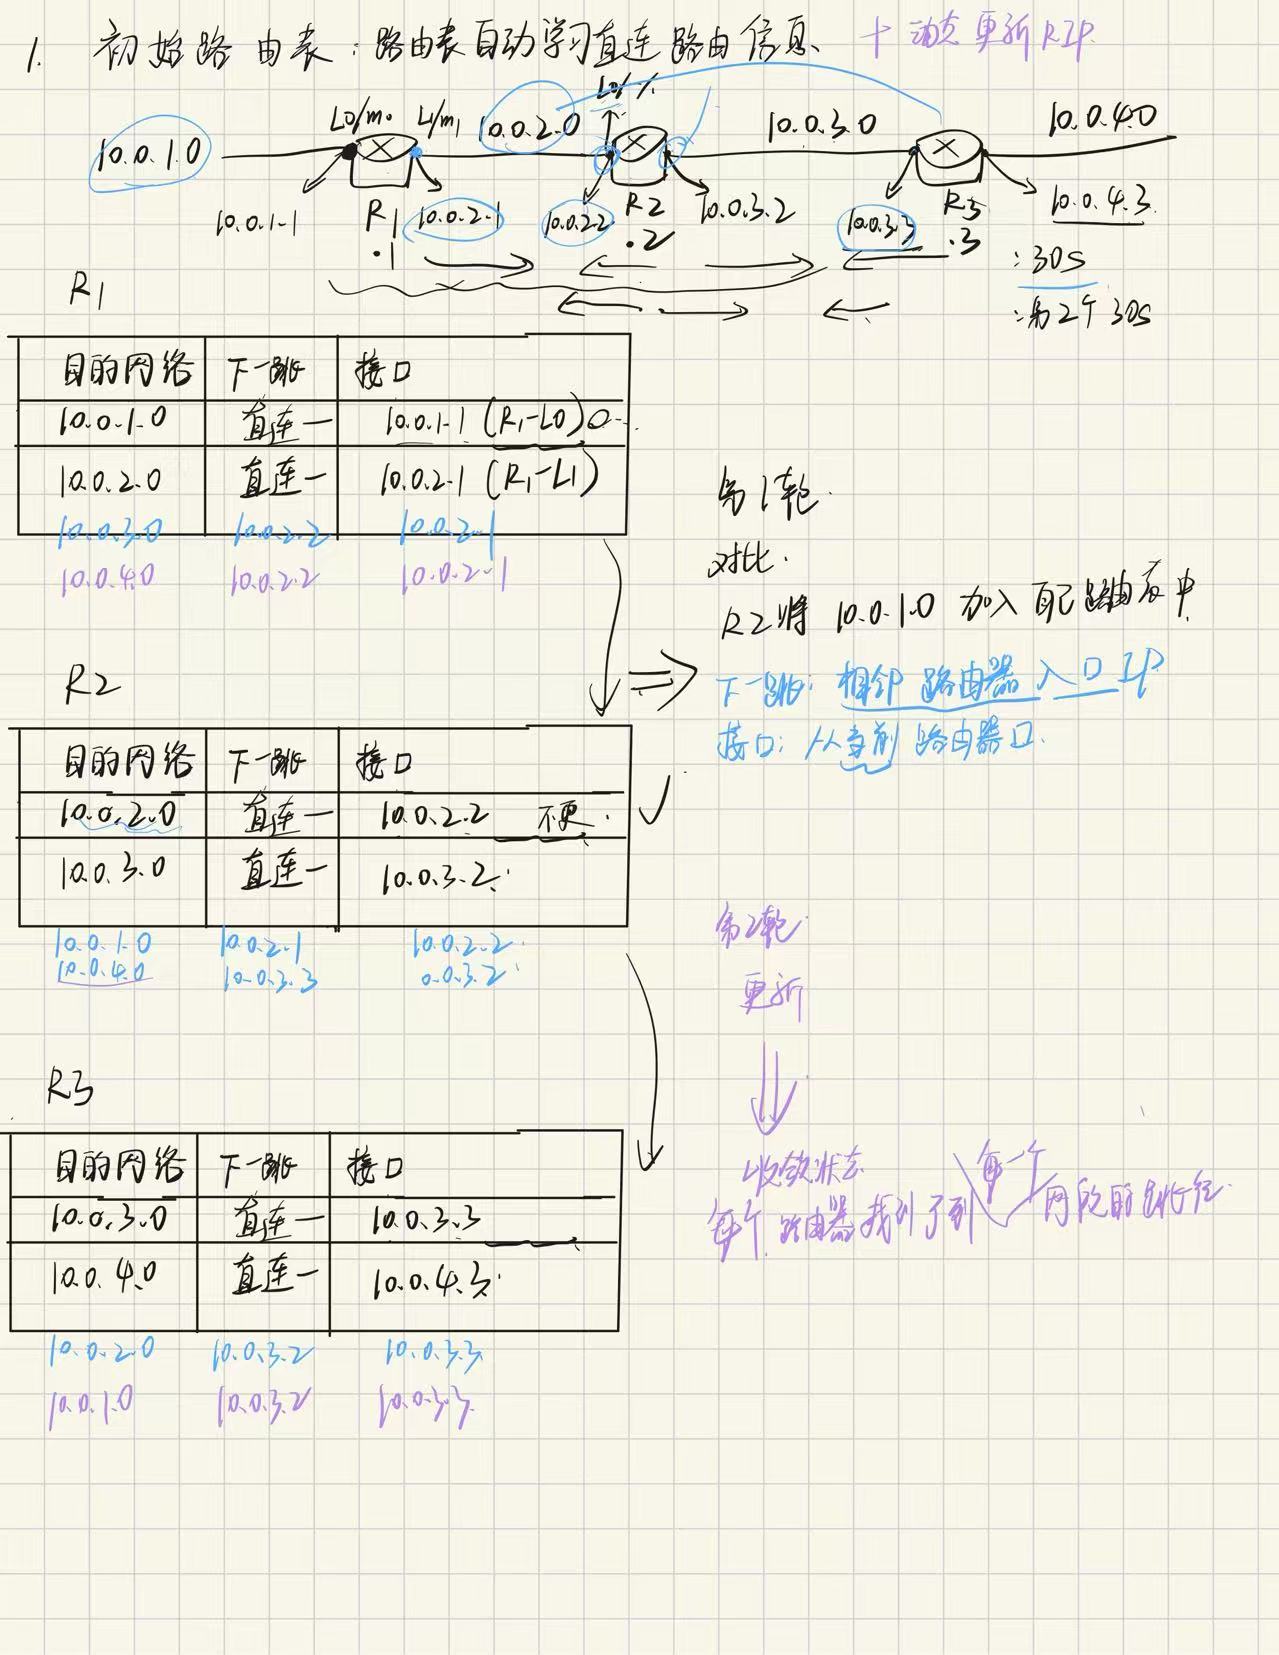 1. 初始路由表：路由表自动学习直连路由信息 + 动态更新RIP.
L0/m0 L1/m1
10.0.1.0 10.0.2.0 10.0.3.0 10.0.4.0
10.0.1.1 R1 10.0.2.1 10.0.2.2 R2 10.0.3.2 10.0.3.3 R3 10.0.4.3
.1 .2 .3
: 30s
: 第2个30s
R1
目的网络 下一跳 接口
10.0.1.0 直连一 10.0.1.1 (R1-L0)
10.0.2.0 直连一 10.0.2.1 (R1-L1)
10.0.3.0 10.0.2.2 10.0.2.1
10.0.4.0 10.0.2.2 10.0.2.1
第1轮.
对比.
R2将 10.0.1.0 加入自己路由表中
下一跳: 相邻路由器入口IP
接口: 从当前路由器口.
R2
目的网络 下一跳 接口
10.0.2.0 直连一 10.0.2.2 不更.
10.0.3.0 直连一 10.0.3.2
10.0.1.0 10.0.2.1 10.0.2.2
10.0.4.0 10.0.3.3 0.0.3.2
第2轮
更新
收敛状态
每个路由器找到了到每一个网段的路径.
R3
目的网络 下一跳 接口
10.0.3.0 直连一 10.0.3.3
10.0.4.0 直连一 10.0.4.3
10.0.2.0 10.0.3.2 10.0.3.3
10.0.1.0 10.0.3.2 10.0.3.3